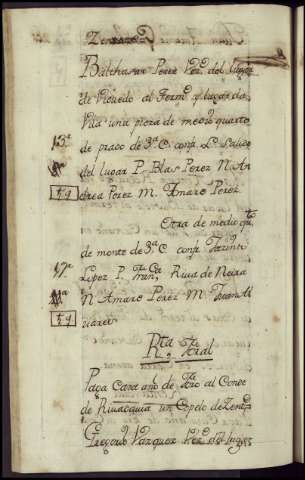 Balthasar Perez Vez.º del Lugar
de Viduedo al Term.º y lugar da
Vila una pieza de medio quarto
15ª de prado de 3ª C. conf. L. Salido
del lugar P. Blas Perez N. An
59 drea Perez M. Amaro Perez
Otra de medio qto
de monte de 3ª C. conf.
17ª Lopez P. Riva de Neira
N. Amaro Perez M. Juan Al
59 varez
Rta Fral
Paga Cada año de al Conde
de Rivadavia un Copelo de Zent.º
Gregorio Vazquez Vez.º del lugar